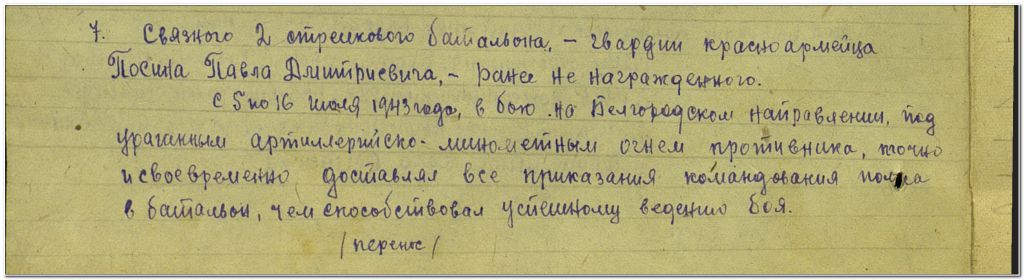 7. Связного 2 стрелкового батальона, – гвардии красноармейца
Посина Павла Дмитриевича, – ранее не награжденного.
С 5 по 16 июля 1943 года, в бою на Белгородском направлении, под
ураганным артиллерийско-минометным огнем противника, точно
и своевременно доставлял все приказания командования полка
в батальон, чем способствовал успешному ведению боя.
/перенос/